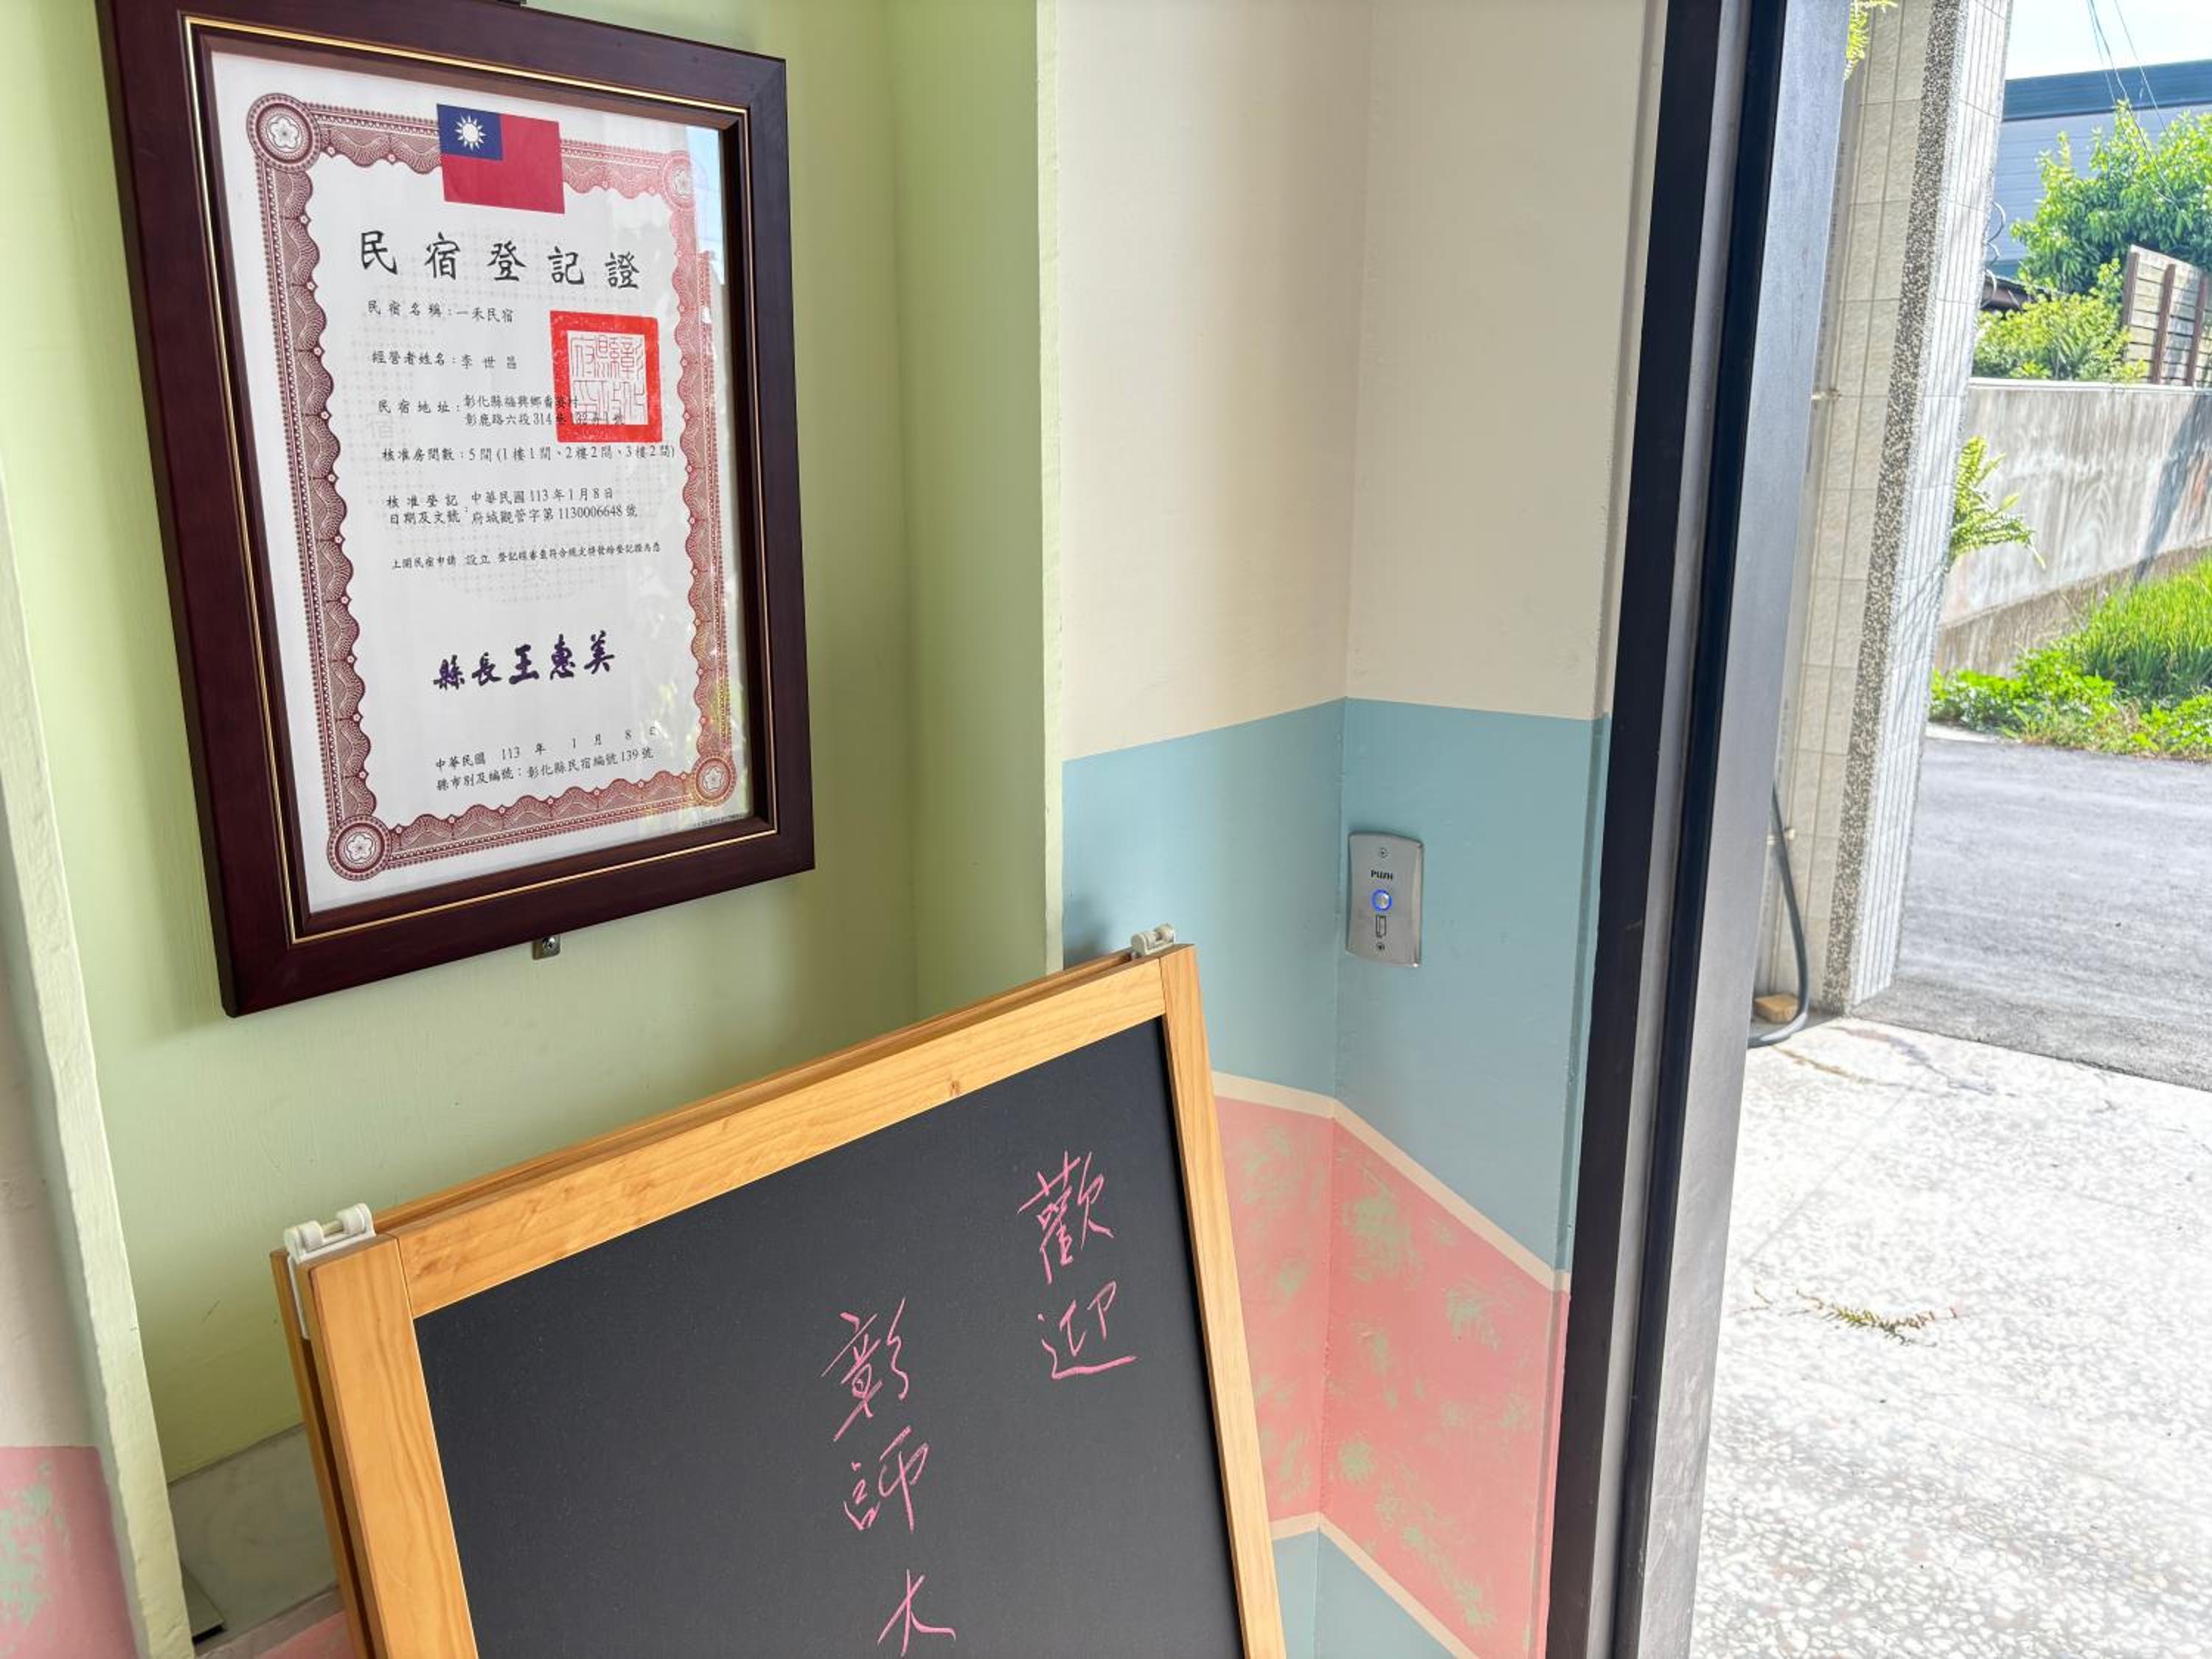 民宿登記證
民宿名稱：一禾民宿
經營者姓名：李世昌
民宿地址：彰化縣福興鄉番婆村
彰鹿路六段314巷132弄1號
核准房間數：5間(1樓1間、2樓2間、3樓2間)
核准登記日期及文號：中華民國113年1月8日
府城觀管字第1130006648號
上開民宿申請 設立 登記經審查符合規定特發給登記證為憑
縣長王惠美
中華民國 113 年 1 月 8 日
縣市別及編號：彰化縣民宿編號139號
PUSH
歡迎
彰師大